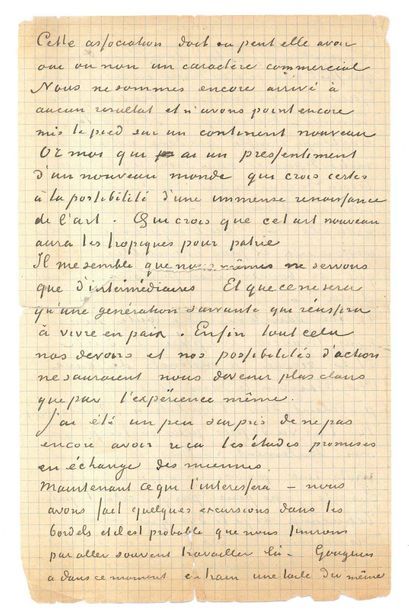 Cette association doit ou peut elle avoir
oui ou non un caractère commercial
Nous ne sommes encore arrivé à
aucun resultat et n'avons point encore
mis le pied sur un continent nouveau
Or moi qui ai un pressentiment
d'un nouveau monde qui crois certes
à la possibilité d'une immense renaissance
de l'art. Qui crois que cet art nouveau
aura les tropiques pour patrie
Il me semble que nous mêmes ne servons
que d'intermédiaires Et que ce ne sera
qu'une génération suivante qui réussira
à vivre en paix. Enfin tout cela
nos devoirs et nos possibilités d'action
ne sauraient nous devenir plus clairs
que par l'expérience même.
J'ai été un peu surpris de ne pas
encore avoir reçu les études promises
en échange des miennes.
Maintenant ce qui t'interessera – nous
avons fait quelques excursions dans les
bordels et il est probable que nous finirons
par aller souvent travailler là. Gauguin
a dans ce moment en train une toile du même